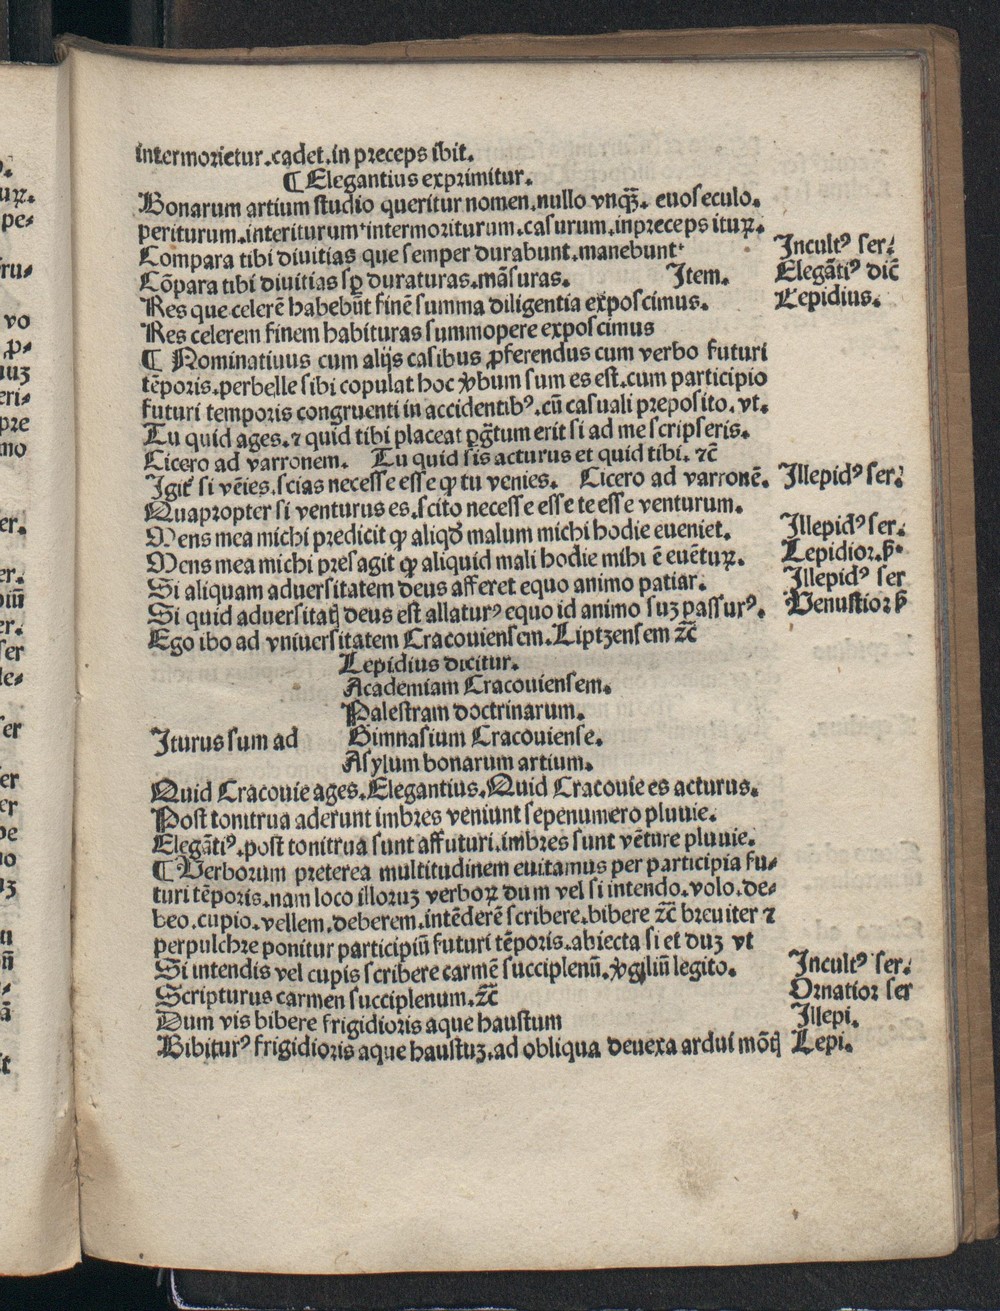 intermorietur.cadet.in preceps ibit.
¶ Elegantius exprimitur.
Bonarum artium studio queritur nomen.nullo vnq̃. euo seculo.
periturum.interiturum intermoriturum.casurum.inpreceps ituꝝ.
Compara tibi diuitias que semper durabunt.manebunt
Incultꝰ ser.
Cõpara tibi diuitias sꝑ duraturas.mãsuras. Item.
Elegãtiꝰ dic̃
Res que celerẽ habebũt finẽ summa diligentia exposcimus.
Lepidius.
Res celerem finem habituras summopere exposcimus
¶ Nominatiuus cum alijs casibus ꝓferendus cum verbo futuri
tẽporis.perbelle sibi copulat hoc ṽbum sum es est.cum participio
futuri temporis congruenti in accidentibꝰ.cũ casuali preposito.vt.
Tu quid ages.⁊ quid tibi placeat ꝑg̃tum erit si ad me scripseris.
Cicero ad varronem. Tu quid sis acturus et quid tibi. ⁊c̃
Igit̃ si vẽies.scias necesse esse ꝙ tu venies. Cicero ad varronẽ.
Illepidꝰ ser.
Quapropter si venturus es.scito necesse esse te esse venturum.
Mens mea michi predicit ꝙ aliqđ malum michi hodie eueniet.
Illepidꝰ ser.
Mens mea michi presagit ꝙ aliquid mali hodie mihi ẽ euẽtuꝝ.
Lepidior.ꝥ.
Si aliquam aduersitatem deus afferet equo animo patiar.
Illepidꝰ ser
Si quid aduersitatꝭ deus est allaturꝰ equo id animo suꝫ passurꝰ.
Venustior ꝥ
Ego ibo ad vniuersitatem Cracouiensem.Liptzensem ⁊c̃
Lepidius dicitur.
Academiam Cracouiensem.
Palestram doctrinarum.
Iturus sum ad Gimnasium Cracouiense.
Asylum bonarum artium.
Quid Cracouie ages.Elegantius.Quid Cracouie es acturus.
Post tonitrua aderunt imbres veniunt sepenumero pluuie.
Elegãtiꝰ.post tonitrua sunt affuturi.imbres sunt vẽture pluuie.
¶ Verborum preterea multitudinem euitamus per participia fu⸗
turi tẽporis.nam loco illoruꝫ verboꝝ dum vel si intendo.volo.de⸗
beo.cupio.vellem.deberem.intẽderẽ scribere.bibere ⁊c̃ breuiter ⁊
perpulchre ponitur participiũ futuri tẽporis.abiecta si et duꝫ vt
Si intendis vel cupis scribere carmẽ succiplenũ.ṽgiliũ legito.
Incultꝰ ser.
Scripturus carmen succiplenum.⁊c̃
Ornatior ser
Dum vis bibere frigidioris aque haustum
Illepi.
Bibiturꝰ frigidioris aque haustuꝫ.ad obliqua deuexa ardui mõtꝭ
Lepi.